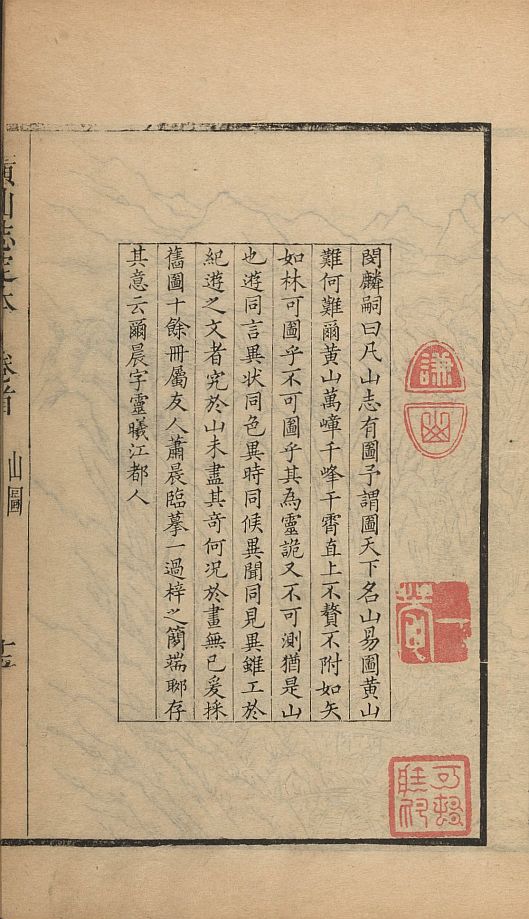 閔麟嗣曰凡山志有圖予謂圖天下名山易圖黄山
難何難爾黄山萬嶂千峰干霄直上不贅不附如矢
如林可圖乎不可圖乎其為靈詭又不可測猶是山
也遊同言異状同色異時同候異聞同見異雖工於
紀遊之文者究於山未盡其竒何况於畫無已爰採
舊圖十餘冊屬友人蕭晨臨摹一過梓之簡端聊存
其意云爾晨字靈曦江都人
黄山志定本
卷首
山圖